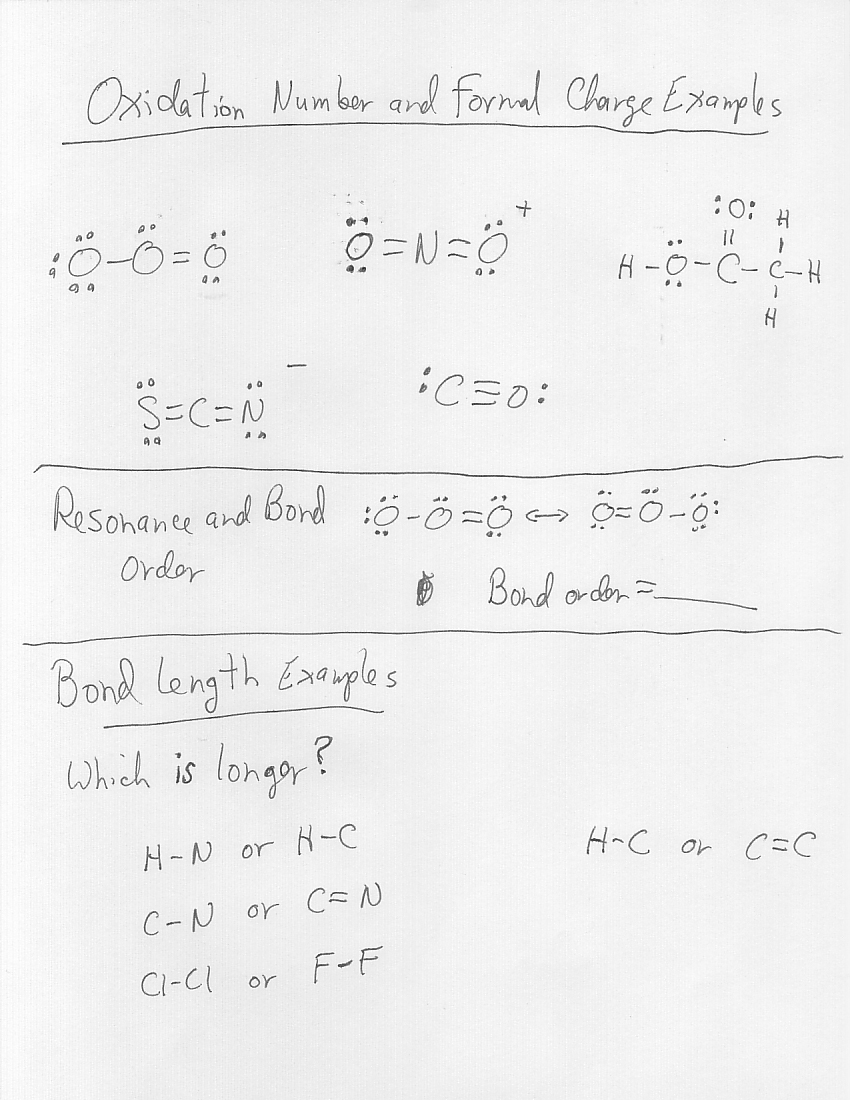 Oxidation Number and Formal Charge Examples
:Ö–Ö=Ö
Ö=N=Ö +
:O: H
||  |
H–Ö–C–C–H
|
H
S̈=C=N̈ −
:C≡O:
Resonance and Bond :Ö–Ö=Ö ↔ Ö=Ö–Ö:
Order
Bond order = ______
Bond Length Examples
Which is longer?
H–N or H–C
H–C or C=C
C–N or C=N
Cl–Cl or F–F